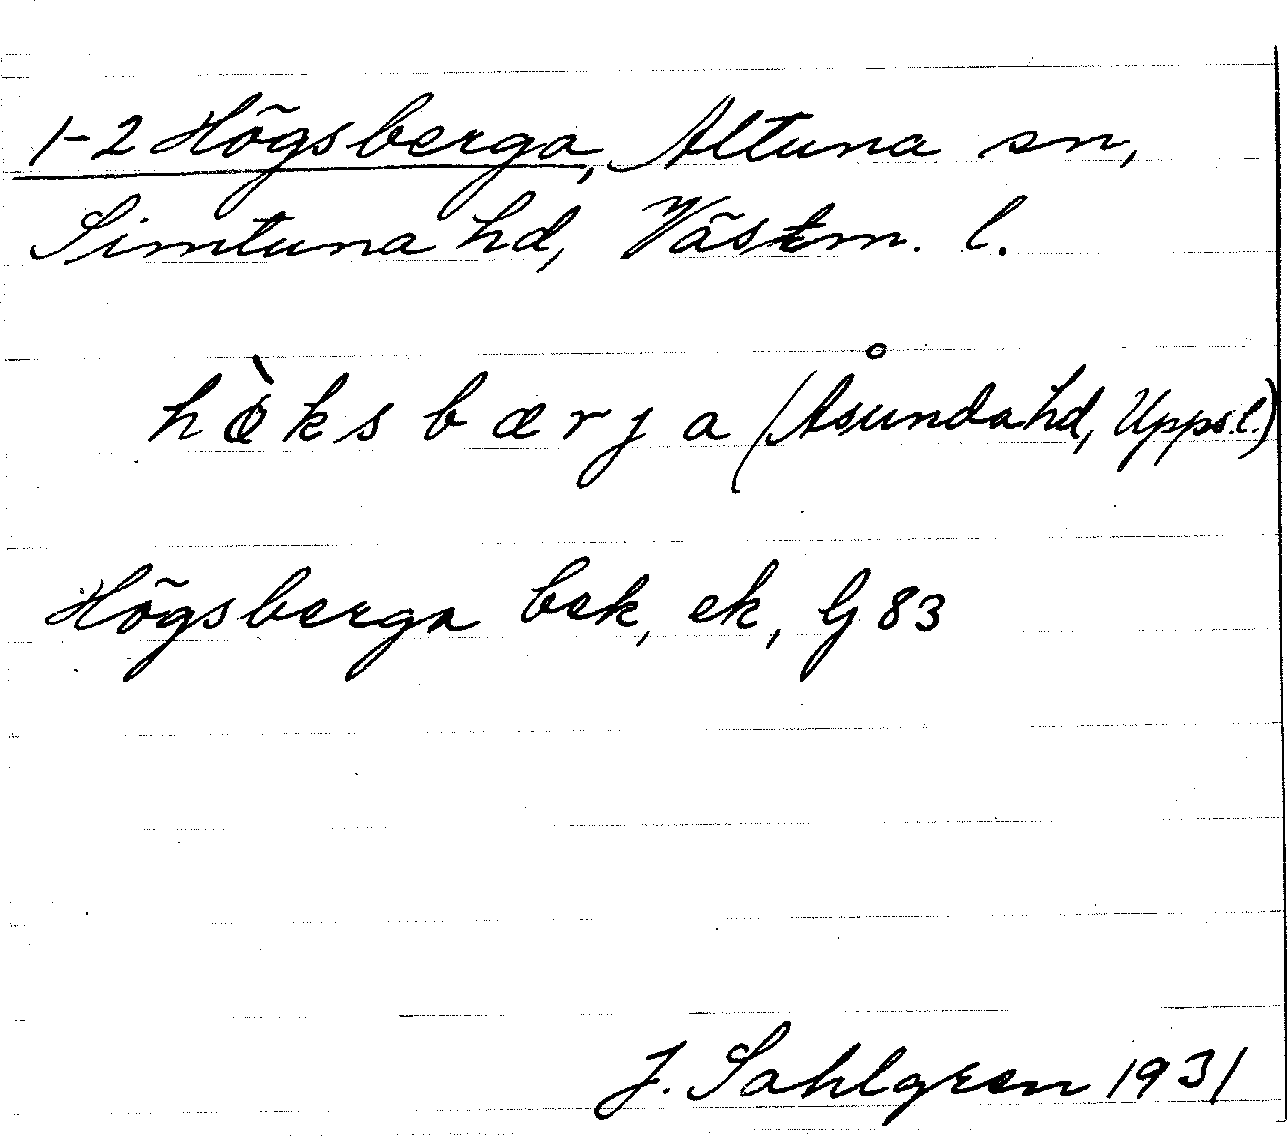 1-2 Högsberga, Altuna sn,
Simtuna hd, Västm. l.
hø̀ksbærja (Åsunda hd, Upps.l.)
Högsberga bek, ek, G 83
J. Sahlgren 1931